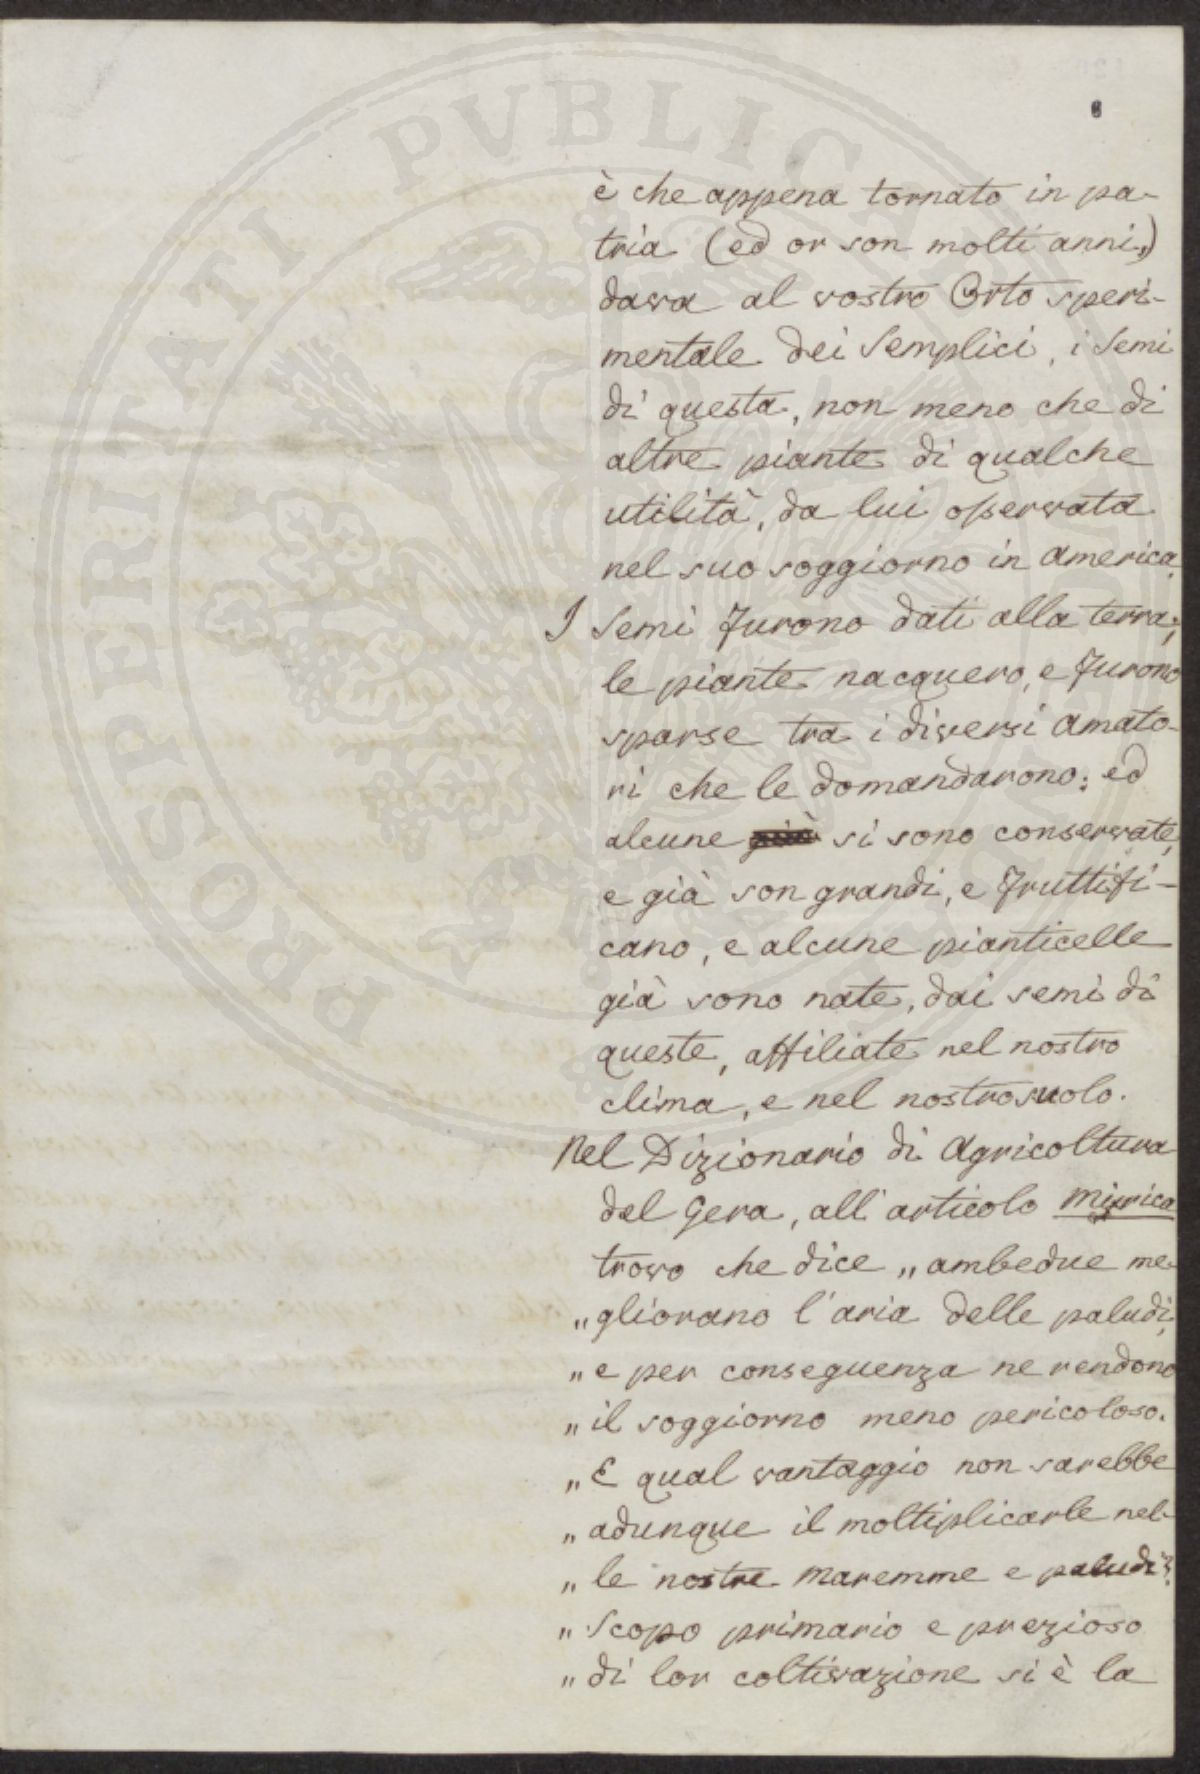 PROSPERITATI PVBLICAE
6
è che appena tornato in pa-
tria (ed or son molti anni,)
dava al vostro Orto speri-
mentale dei Semplici, i Semi
di questa, non meno che di
altre piante di qualche
utilità, da lui osservata
nel suo soggiorno in America.
I Semi furono dati alla terra;
le piante nacquero, e furono
sparse tra i diversi Amato-
ri che le domandarono: ed
alcune già si sono conservate,
e già son grandi, e fruttifi-
cano, e alcune pianticelle
già sono nate, dai semi di
queste, affiliate nel nostro
clima, e nel nostro suolo.
Nel Dizionario di Agricoltura
del Gera, all'articolo Mirica
trovo che dice „ ambedue me-
„ gliorano l'aria delle paludi,
„ e per conseguenza ne rendono
„ il soggiorno meno pericoloso.
„ E qual vantaggio non sarebbe
„ adunque il moltiplicarle nel-
„ le nostre maremme e paludi?
„ Scopo primario e prezioso
„ di lor coltivazione si è la